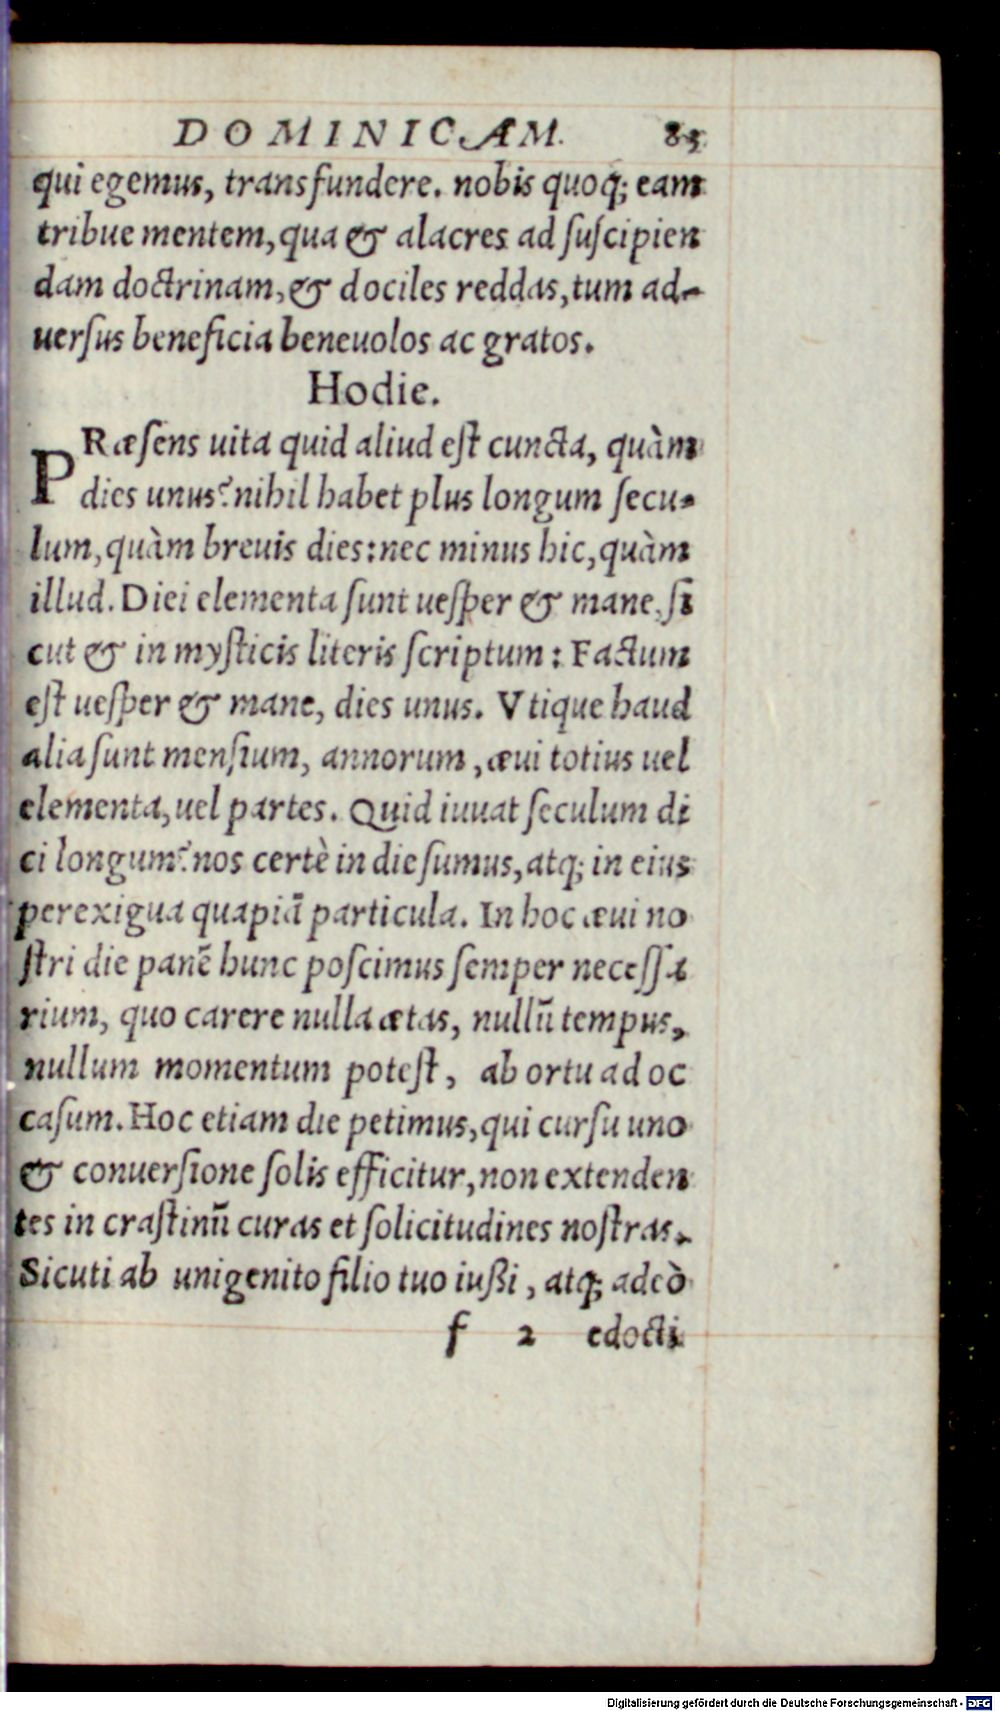 DOMINICAM. 83
qui egemus, transfundere. nobis quoq; eam
tribue mentem, qua & alacres ad ſuſcipien
dam doctrinam, & dociles reddas, tum ad-
uerſus beneficia beneuolos ac gratos.
Hodie.
PRæſens uita quid aliud eſt cuncta, quàm
dies unus? nihil habet plus longum ſecu-
lum, quàm breuis dies: nec minus hic, quàm
illud. Diei elementa ſunt ueſper & mane, ſi
cut & in myſticis literis ſcriptum: Factum
eſt ueſper & mane, dies unus. Vtique haud
alia ſunt menſium, annorum, æui totius uel
elementa, uel partes. Quid iuuat ſeculum di
ci longum? nos certè in die ſumus, atq; in eius
perexigua quapiā particula. In hoc æui no
ſtri die panē hunc poſcimus ſemper neceſſa
rium, quo carere nulla ætas, nullū tempus,
nullum momentum poteſt, ab ortu ad oc
caſum. Hoc etiam die petimus, qui curſu uno
& conuerſione ſolis efficitur, non extenden
tes in craſtinū curas et ſolicitudines noſtras.
Sicuti ab unigenito filio tuo iußi, atq; adeò
f 2 edocti
Digitalisierung gefördert durch die Deutsche Forschungsgemeinschaft - DFG